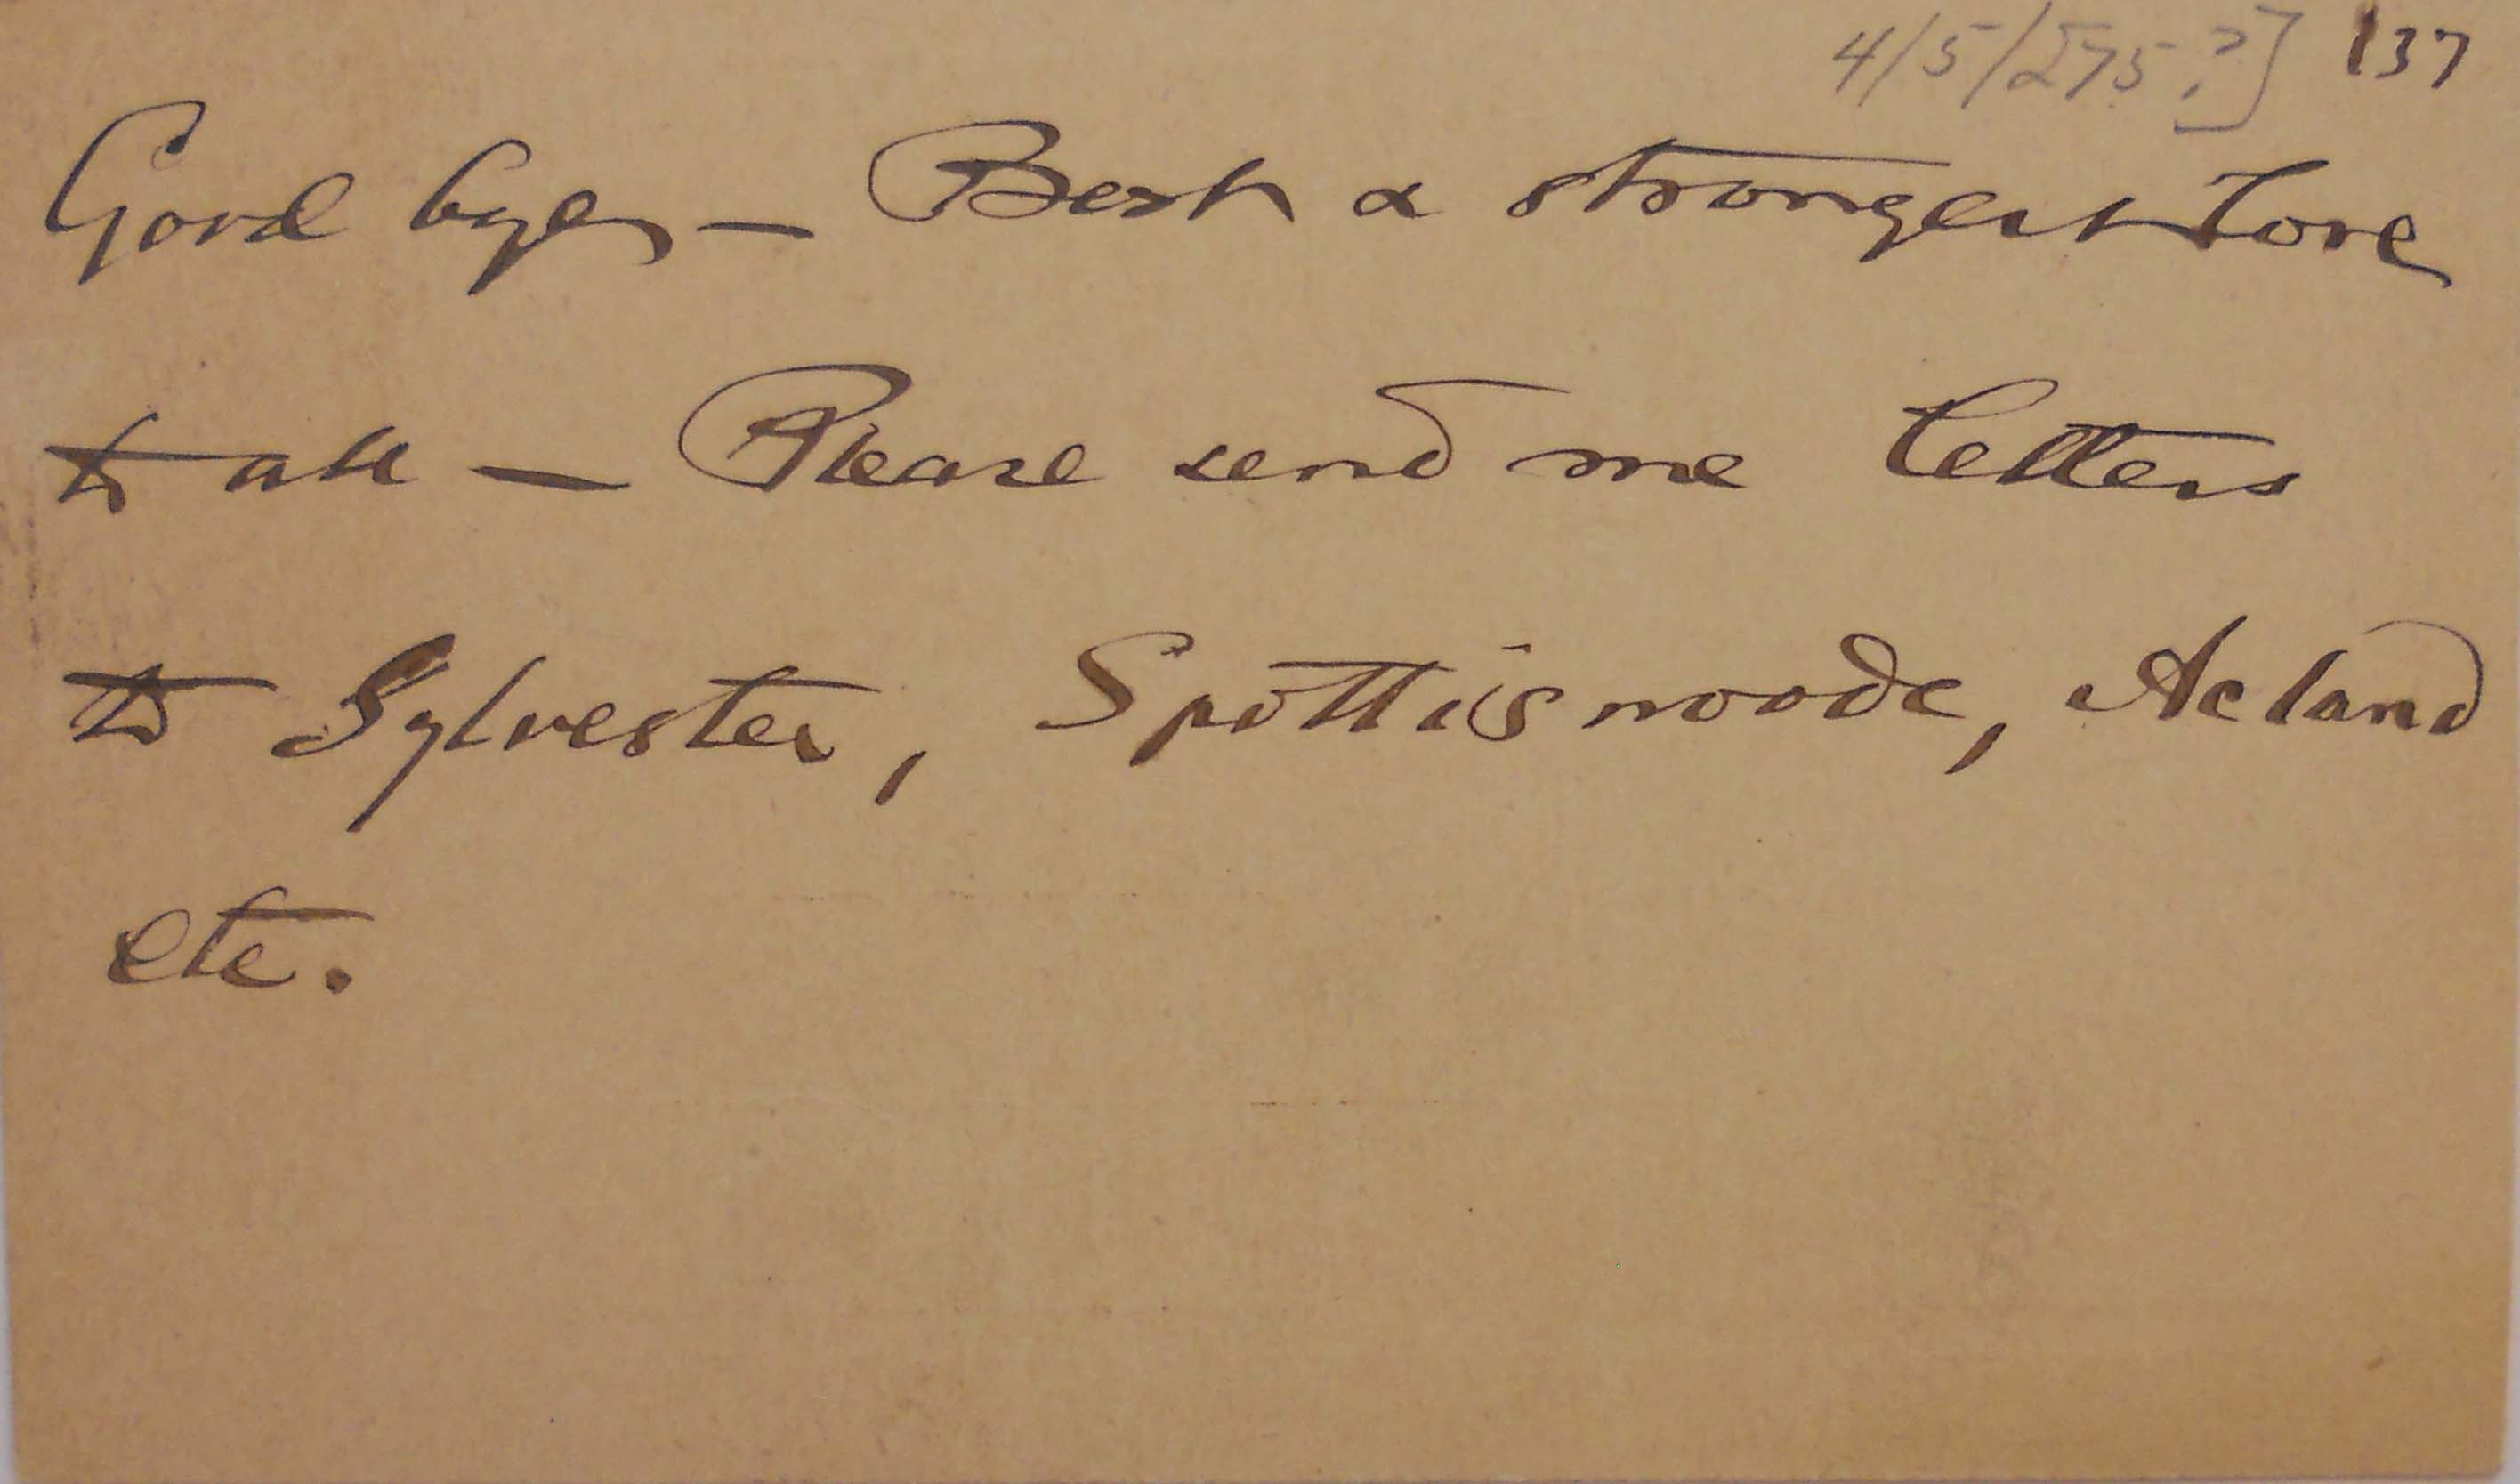 4/5/275?] 137
Good bye, — Best & strongest love
to all — Please send me letters
to Sylvester, Spottiswoode, Acland
etc.